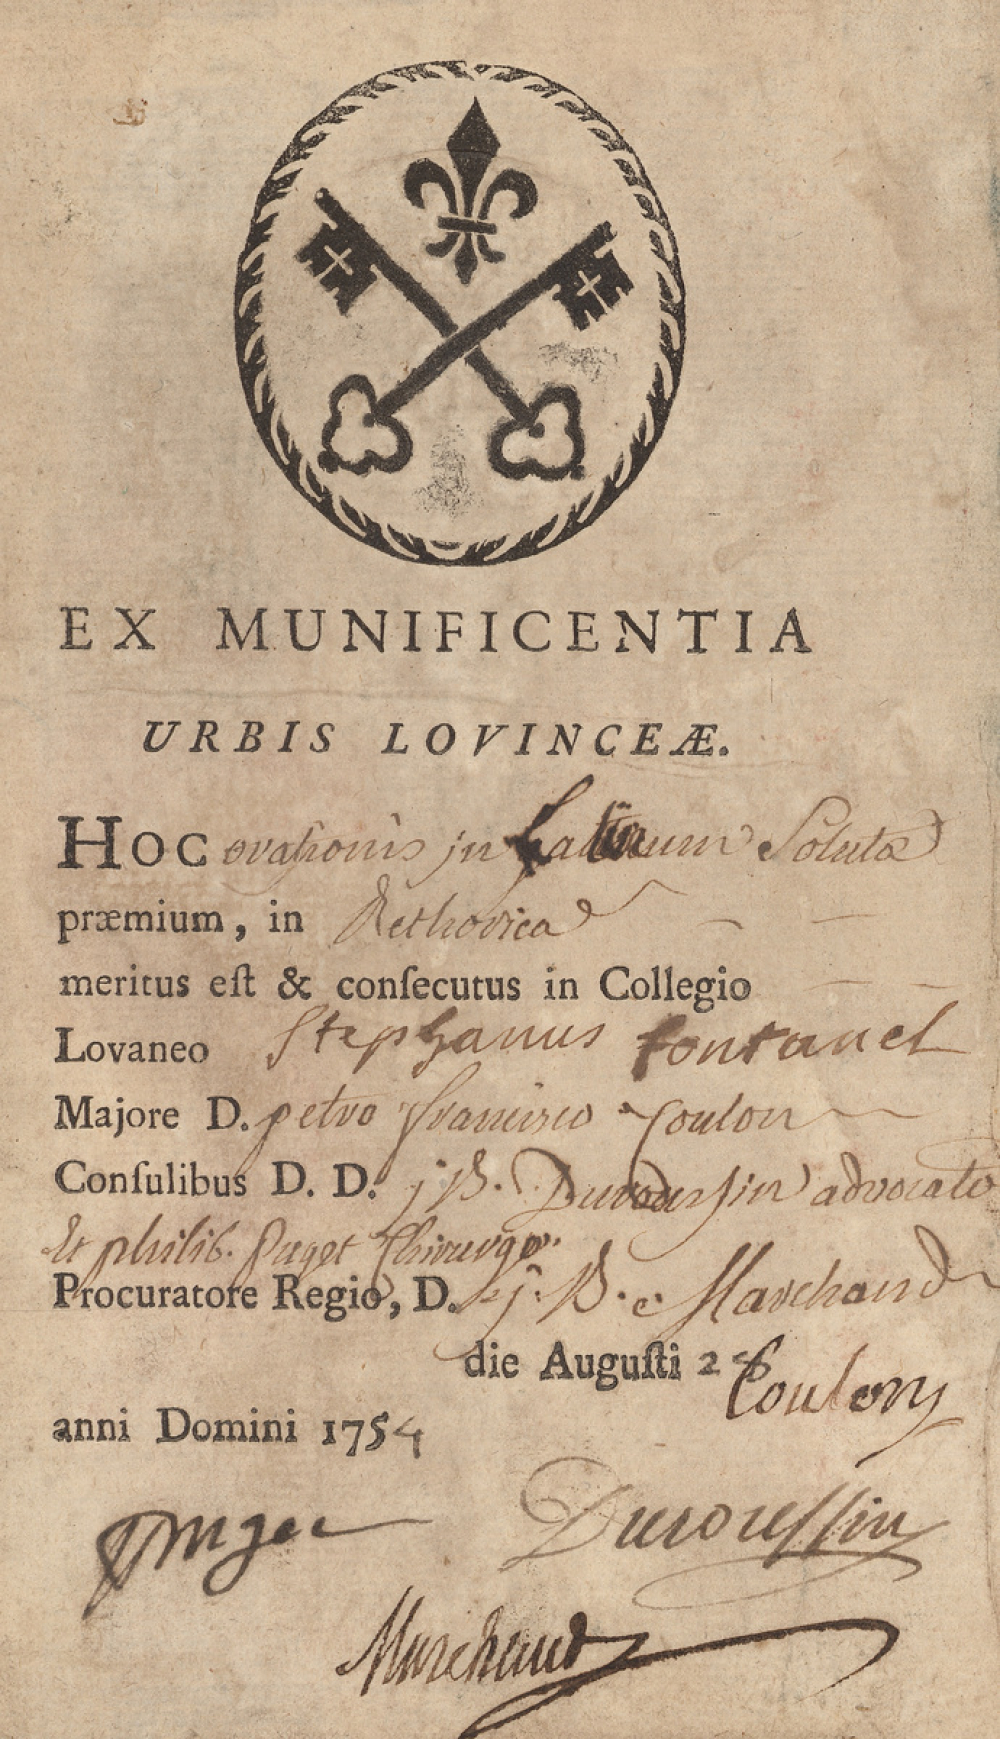 EX MUNIFICENTIA
URBIS LOVINCEÆ.
HOC orationis in Latinum Soluta
præmium, in Rethorica
meritus eſt & conſecutus in Collegio
Lovaneo Stephanus fontanel
Majore D. petro francisco Coulon
Conſulibus D. D. j B. Duroussin advocato
Et philib. Puget Chirurgo.
Procuratore Regio, D. j. B. Marchand
die Auguſti 26
Coulon
anni Domini 1754
Duroussin
Marchand